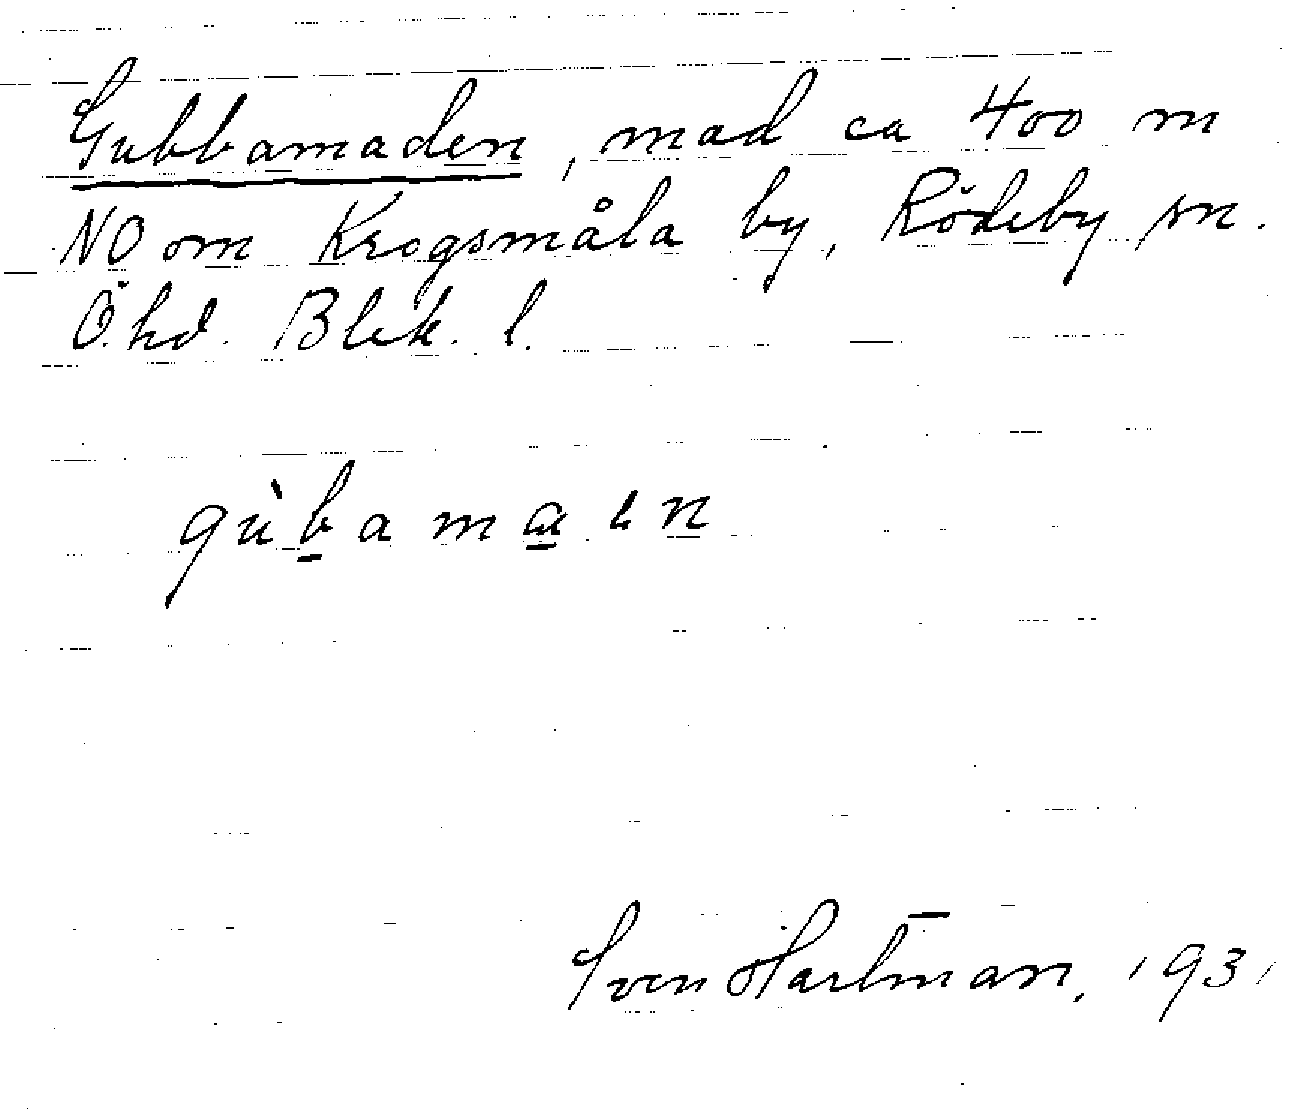 Gubbamaden, mad ca 400 m
NO om Krogsmåla by, Rödeby sn.
Ö.hd. Blek. l.
gùbamaen
Sven Hartman, 1931